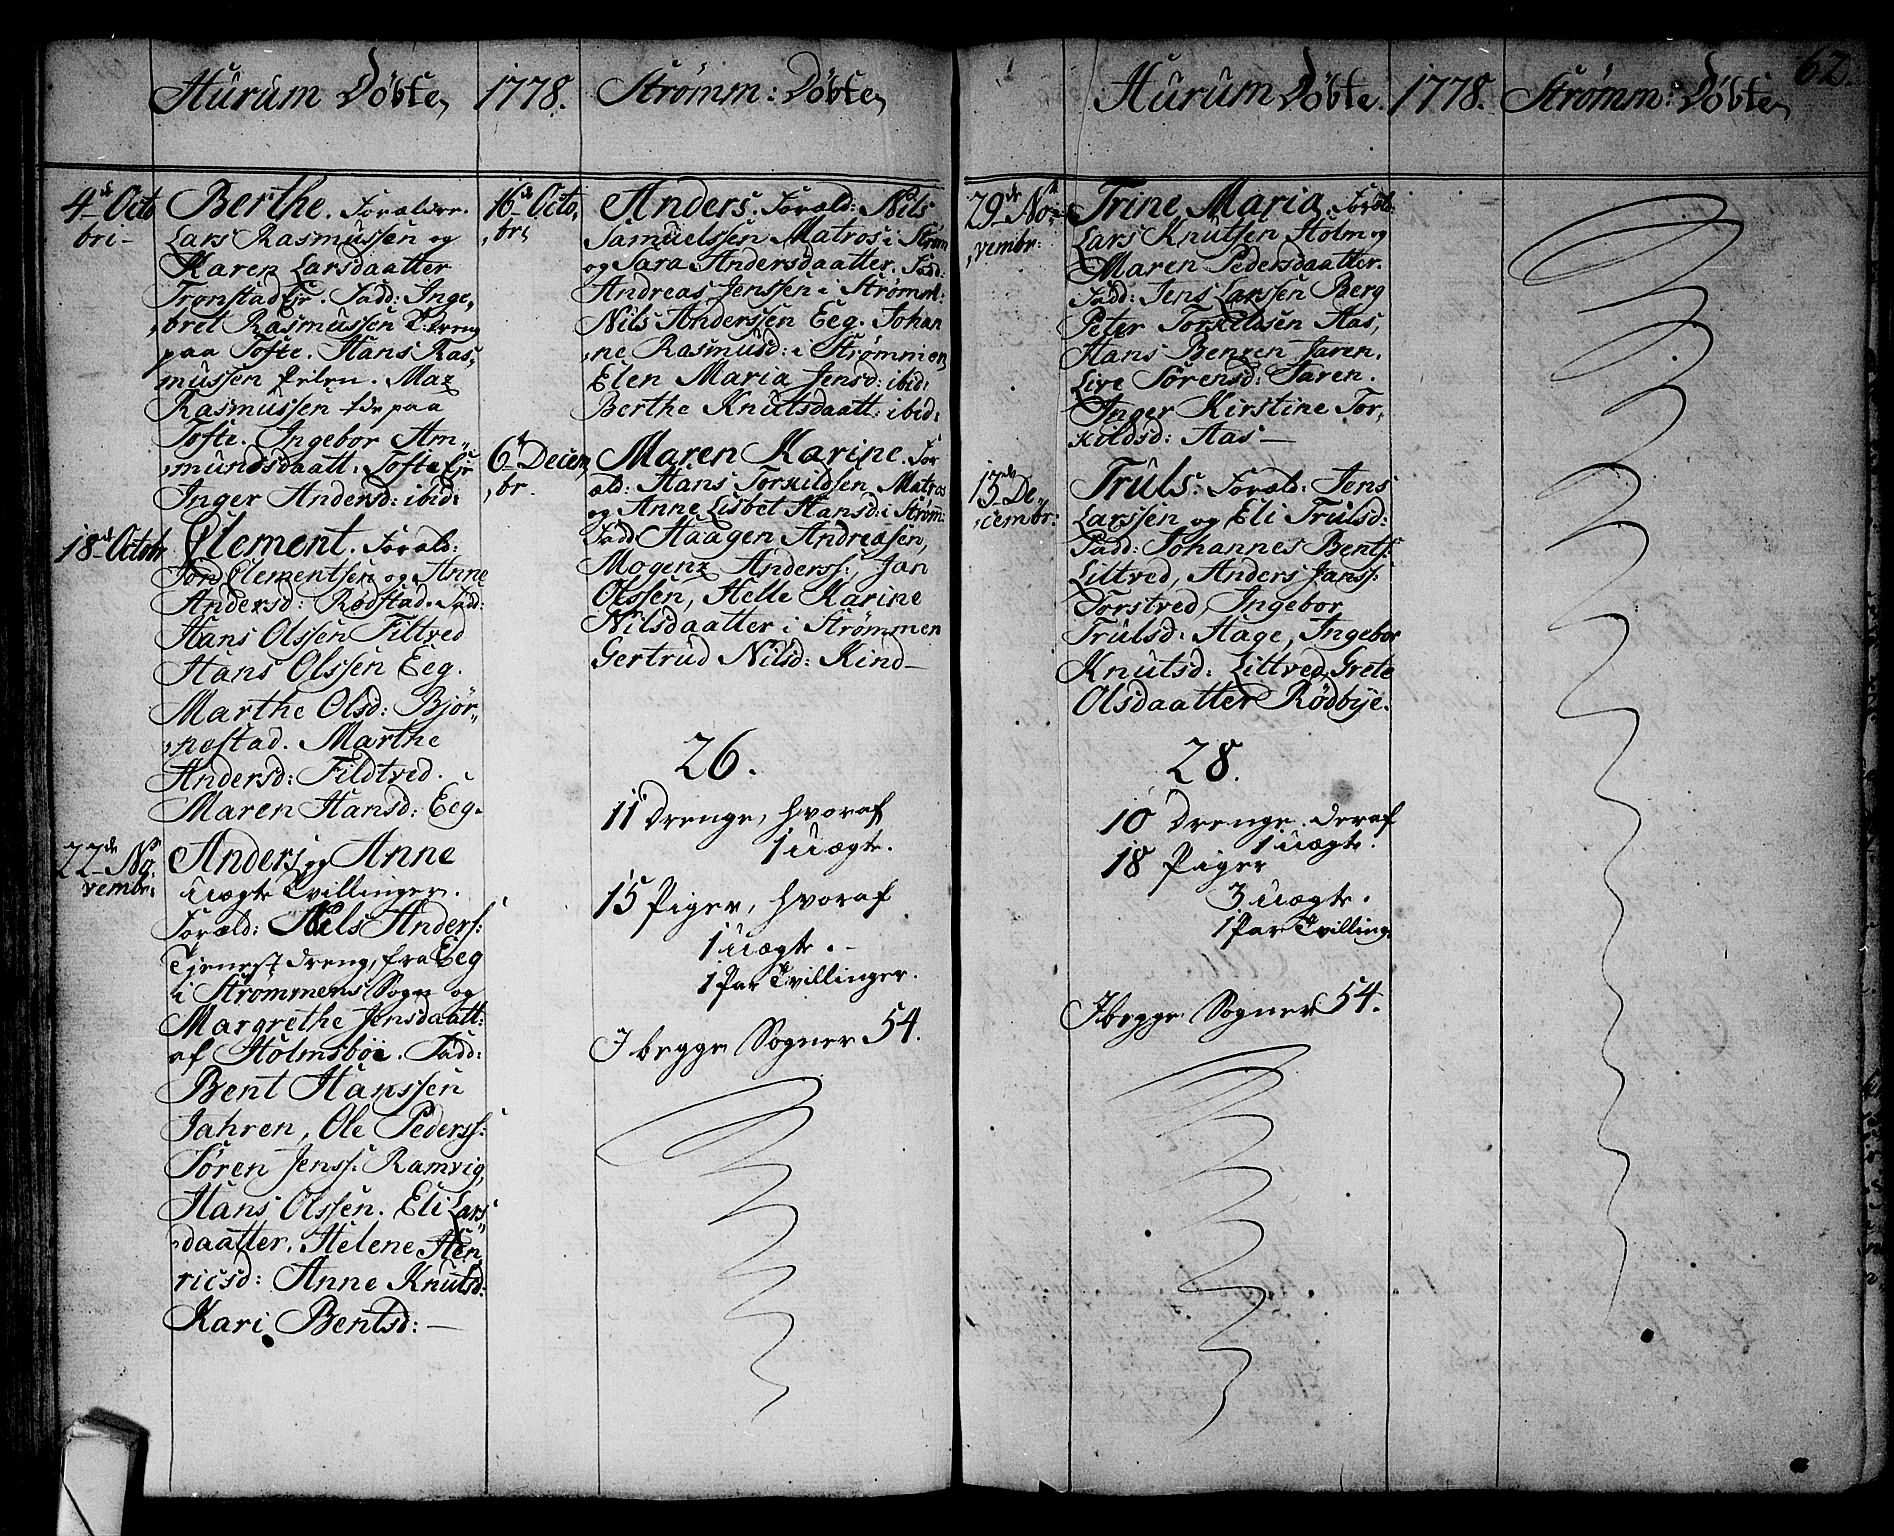 Hurum Döbte,
4de Octo
bri
Berthe. Forældre.
Lars Rasmussen og
Karen Larsdaatter
Tronstad Ejr. Fadd: Inge,
bret Rasmussen T. Dreng
paa Tofte. Hans Ras,
mussen ibid. Maz
Rasmussen
Tofte. Ingebor Am,
mundsdaatt: Tofte Ejr
Inger Andersd: ibid:
18de Octobr
Clement. Foræld:
Jon Clementsen og Anne
Andersd: Rödstad. Fadd:
Hans Olssen Filtved
Hans Olssen Eeg.
Marthe Olsd: Bjør,
nestad. Marthe
Andersd: Fildtved.
Maren Hansd: Eeg.
22de No,
vembr:
Anders og Anne
uægte Tvillinger.
Foræld: Nils Anders:
Tjenest Dreng, fra Eeg
i Strømmens Sogn og
Margrethe Jensdaatt:
af Holmsboe. Fadd:
Bent Hanssen
Jahren, Ole Pederss:
Søren Jenss: Ramvig,
Hans Olssen. Eli Lars,
daatter. Helene Hen,
ricsd: Anne Knutsd:
Kari Bentsd:
1778. Strømm: Döbte,
16de Octo,
bri
Anders. Foræld: Nils
Samuelssen Matros i Strøm
og Sara Andersdaatter. Fadd:
Andreas Jenssen i Strømm:
Nils Anderssen Eeg. Johan
ne Rasmusd: i Strømmen,
Elen Maria Jensd: ibid:
Berthe Knutsdaatt: ibid:
6t Decem,
br.
Maren Karine. For
æld: Hans Torkildsen Matros
og Anne Lisbet Hansd: i Strøm:
Fadd Haagen Andreasen,
Mogenz Anderss: Jan
Olssen, Helle Karine
Nilsdaatter i Strømmen
Gertrud Nilsd: Kind
26.
11 Drenge, hvoraf
1 uægte.
15 Piger, hvoraf
1 uægte.
1 Par Tvillinger.
I begge Sogner 54.
62.
Hurum Döbte. 1778. Strømm: Döbte,
29de No,
vembr:
Trine Maria. Foræl:
Lars Knutsen Holm og
Maren Pedersdaatter.
Fadd: Jens Larssen Berg
Peter Torkildsen Aas,
Hans Benzen Jaren.
Live Sörensd: Jaren.
Inger Kirstine Tor,
kildsd: Aas
13de De,
cembr:
Truls. Foræld: Jens
Larssen og Eli Trulsd:
Fadd: Johannes Bents:
Littved, Anders Janss:
Torstved, Ingebor
Trulsd: Hage, Ingebor
Knutsd: Littved, Grete
Olsdaatter Rödbye.
28.
10 Drenge. deraf
1 uægte.
18 Piger
3 uægte.
1 Par Tvilling,
I begge Sogner 54.